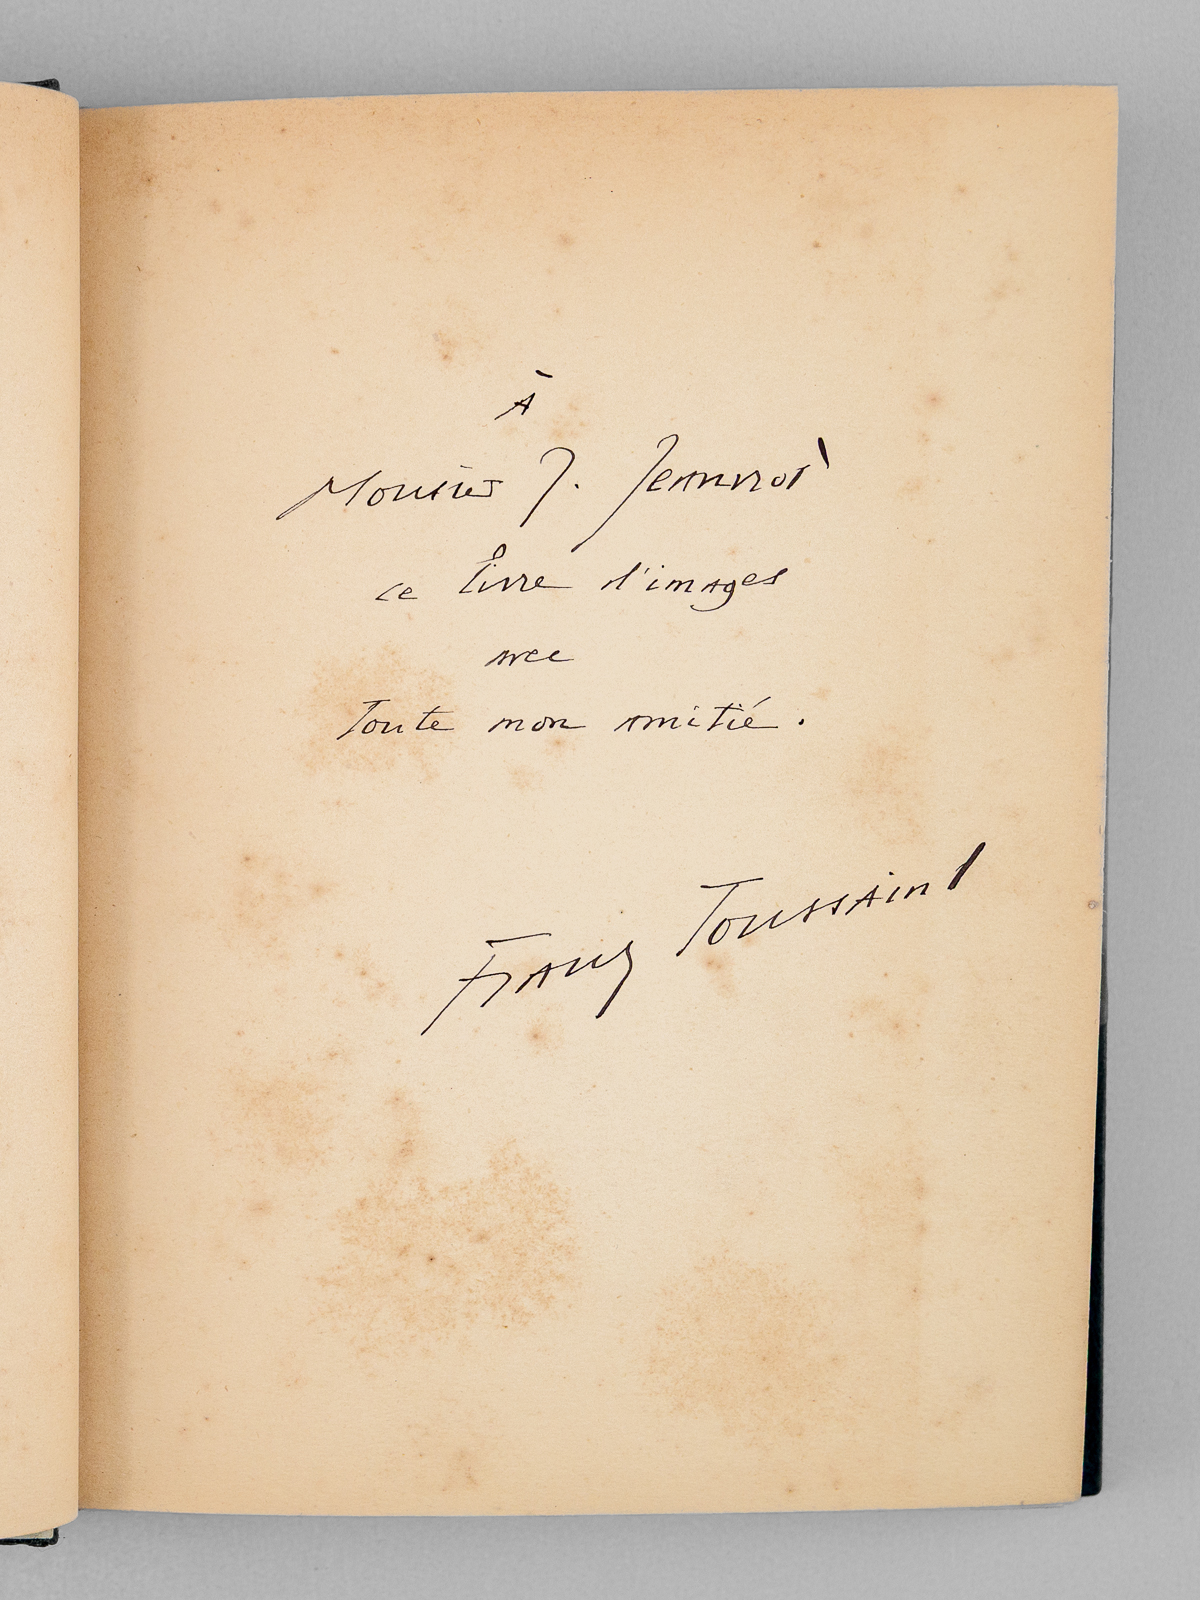 À
Monsieur J. Jeannot
ce livre d'images
avec
toute mon amitié.
Franz Toussaint